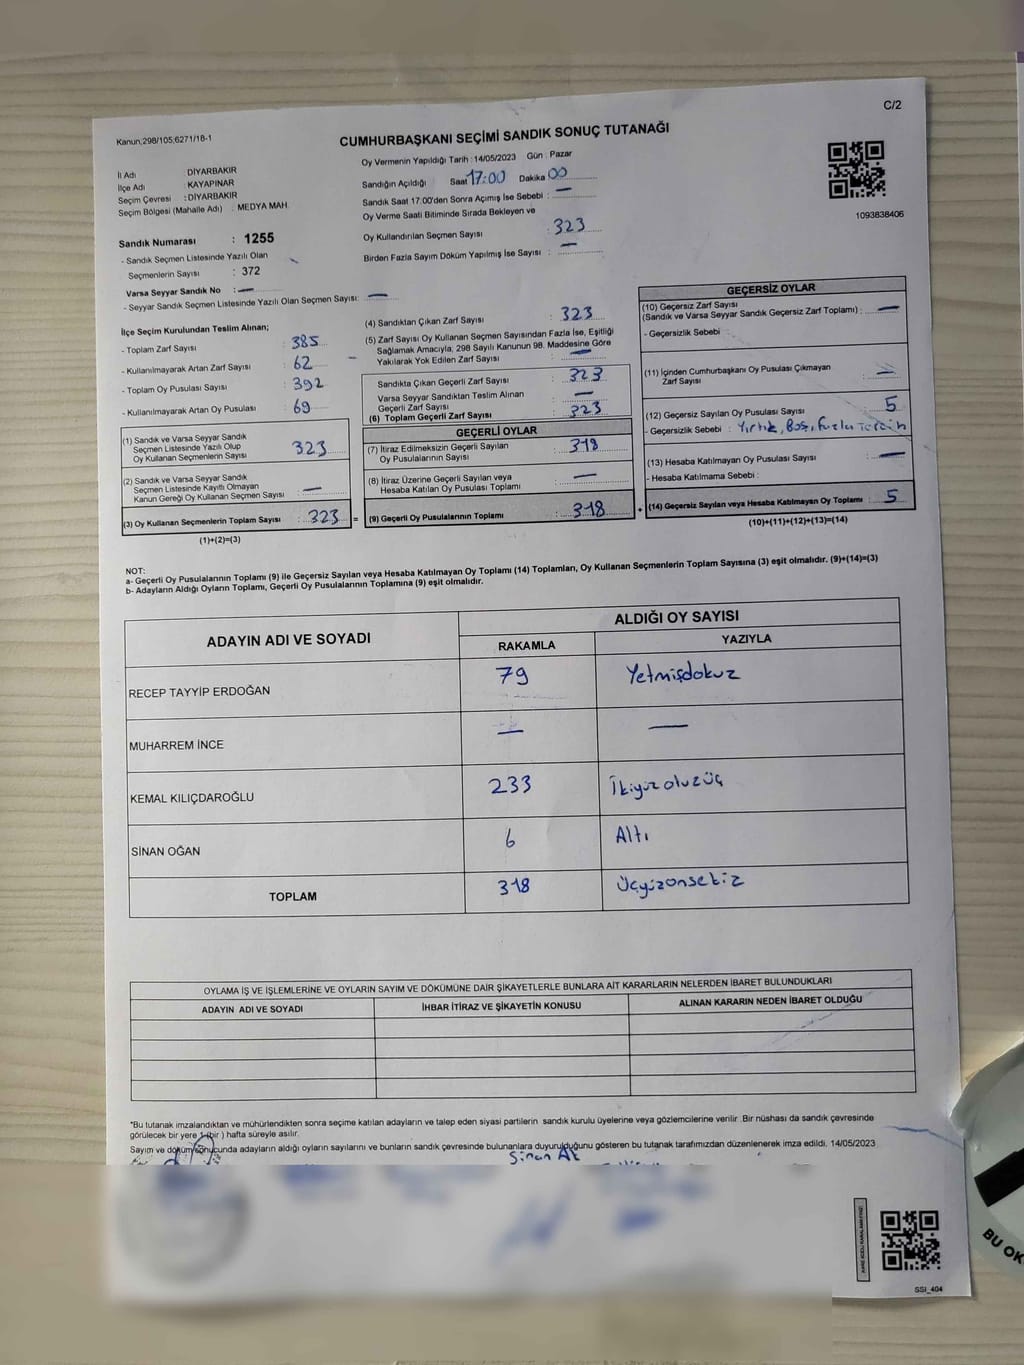 C/2
Kanun;298/105;6271/18-1
CUMHURBAŞKANI SEÇİMİ SANDIK SONUÇ TUTANAĞI
İl Adı : DİYARBAKIR
İlçe Adı : KAYAPINAR
Seçim Çevresi : DİYARBAKIR
Seçim Bölgesi (Mahalle Adı) : MEDYA MAH.
Oy Vermenin Yapıldığı Tarih : 14/05/2023 Gün : Pazar
Sandığın Açıldığı Saat 17:00 Dakika 00
Sandık Saat 17.00'den Sonra Açımış İse Sebebi : —
Oy Verme Saati Bitiminde Sırada Bekleyen ve
Oy Kullandırılan Seçmen Sayısı : 323
Birden Fazla Sayım Döküm Yapılmış İse Sayısı : —
1093838406
Sandık Numarası : 1255
- Sandık Seçmen Listesinde Yazılı Olan
Seçmenlerin Sayısı : 372
Varsa Seyyar Sandık No : —
- Seyyar Sandık Seçmen Listesinde Yazılı Olan Seçmen Sayısı: —
İlçe Seçim Kurulundan Teslim Alınan;
- Toplam Zarf Sayısı : 385
- Kullanılmayarak Artan Zarf Sayısı : 62
- Toplam Oy Pusulası Sayısı : 392
- Kullanılmayarak Artan Oy Pusulası : 69
(1) Sandık ve Varsa Seyyar Sandık
Seçmen Listesinde Yazılı Olup
Oy Kullanan Seçmenlerin Sayısı 323
(2) Sandık ve Varsa Seyyar Sandık
Seçmen Listesinde Kayıtlı Olmayan
Kanun Gereği Oy Kullanan Seçmen Sayısı : —
(3) Oy Kullanan Seçmenlerin Toplam Sayısı : 323 =
(1)+(2)=(3)
(4) Sandıktan Çıkan Zarf Sayısı : 323
(5) Zarf Sayısı Oy Kullanan Seçmen Sayısından Fazla İse, Eşitliği
Sağlamak Amacıyla, 298 Sayılı Kanunun 98. Maddesine Göre
Yakılarak Yok Edilen Zarf Sayısı : —
Sandıkta Çıkan Geçerli Zarf Sayısı : 323
Varsa Seyyar Sandıktan Teslim Alınan
Geçerli Zarf Sayısı : —
(6) Toplam Geçerli Zarf Sayısı : 323
GEÇERLİ OYLAR
(7) İtiraz Edilmeksizin Geçerli Sayılan
Oy Pusulalarının Sayısı : 318
(8) İtiraz Üzerine Geçerli Sayılan veya
Hesaba Katılan Oy Pusulası Toplamı : —
(9) Geçerli Oy Pusulalarının Toplamı : 318 +
GEÇERSİZ OYLAR
(10) Geçersiz Zarf Sayısı
(Sandık ve Varsa Seyyar Sandık Geçersiz Zarf Toplamı) : —
- Geçersizlik Sebebi :
(11) İçinden Cumhurbaşkanı Oy Pusulası Çıkmayan
Zarf Sayısı : —
(12) Geçersiz Sayılan Oy Pusulası Sayısı : 5
- Geçersizlik Sebebi : Yırtık, Boş, Fazla Tercih
(13) Hesaba Katılmayan Oy Pusulası Sayısı : —
- Hesaba Katılmama Sebebi :
(14) Geçersiz Sayılan veya Hesaba Katılmayan Oy Toplamı : 5
(10)+(11)+(12)+(13)=(14)
NOT:
a- Geçerli Oy Pusulalarının Toplamı (9) ile Geçersiz Sayılan veya Hesaba Katılmayan Oy Toplamı (14) Toplamları, Oy Kullanan Seçmenlerin Toplam Sayısına (3) eşit olmalıdır. (9)+(14)=(3)
b- Adayların Aldığı Oyların Toplamı, Geçerli Oy Pusulalarının Toplamına (9) eşit olmalıdır.
ADAYIN ADI VE SOYADI ALDIĞI OY SAYISI
RAKAMLA YAZIYLA
RECEP TAYYİP ERDOĞAN 79 Yetmişdokuz
MUHARREM İNCE — —
KEMAL KILIÇDAROĞLU 233 İkiyüzotuzüç
SİNAN OĞAN 6 Altı
TOPLAM 318 Üçyüzonsekiz
OYLAMA İŞ VE İŞLEMLERİNE VE OYLARIN SAYIM VE DÖKÜMÜNE DAİR ŞİKAYETLERLE BUNLARA AİT KARARLARIN NELERDEN İBARET BULUNDUKLARI
ADAYIN ADI VE SOYADI İHBAR İTİRAZ VE ŞİKAYETİN KONUSU ALINAN KARARIN NEDEN İBARET OLDUĞU
*Bu tutanak imzalandıktan ve mühürlendikten sonra seçime katılan adayların ve talep eden siyasi partilerin sandık kurulu üyelerine veya gözlemcilerine verilir .Bir nüshası da sandık çevresinde
görülecek bir yere 1 (bir ) hafta süreyle asılır.
Sayım ve döküm sonucunda adayların aldığı oyların sayılarını ve bunların sandık çevresinde bulunanlara duyurulduğunu gösteren bu tutanak tarafımızdan düzenlenerek imza edildi. 14/05/2023
Sinan AK
BU OK
SSI_404